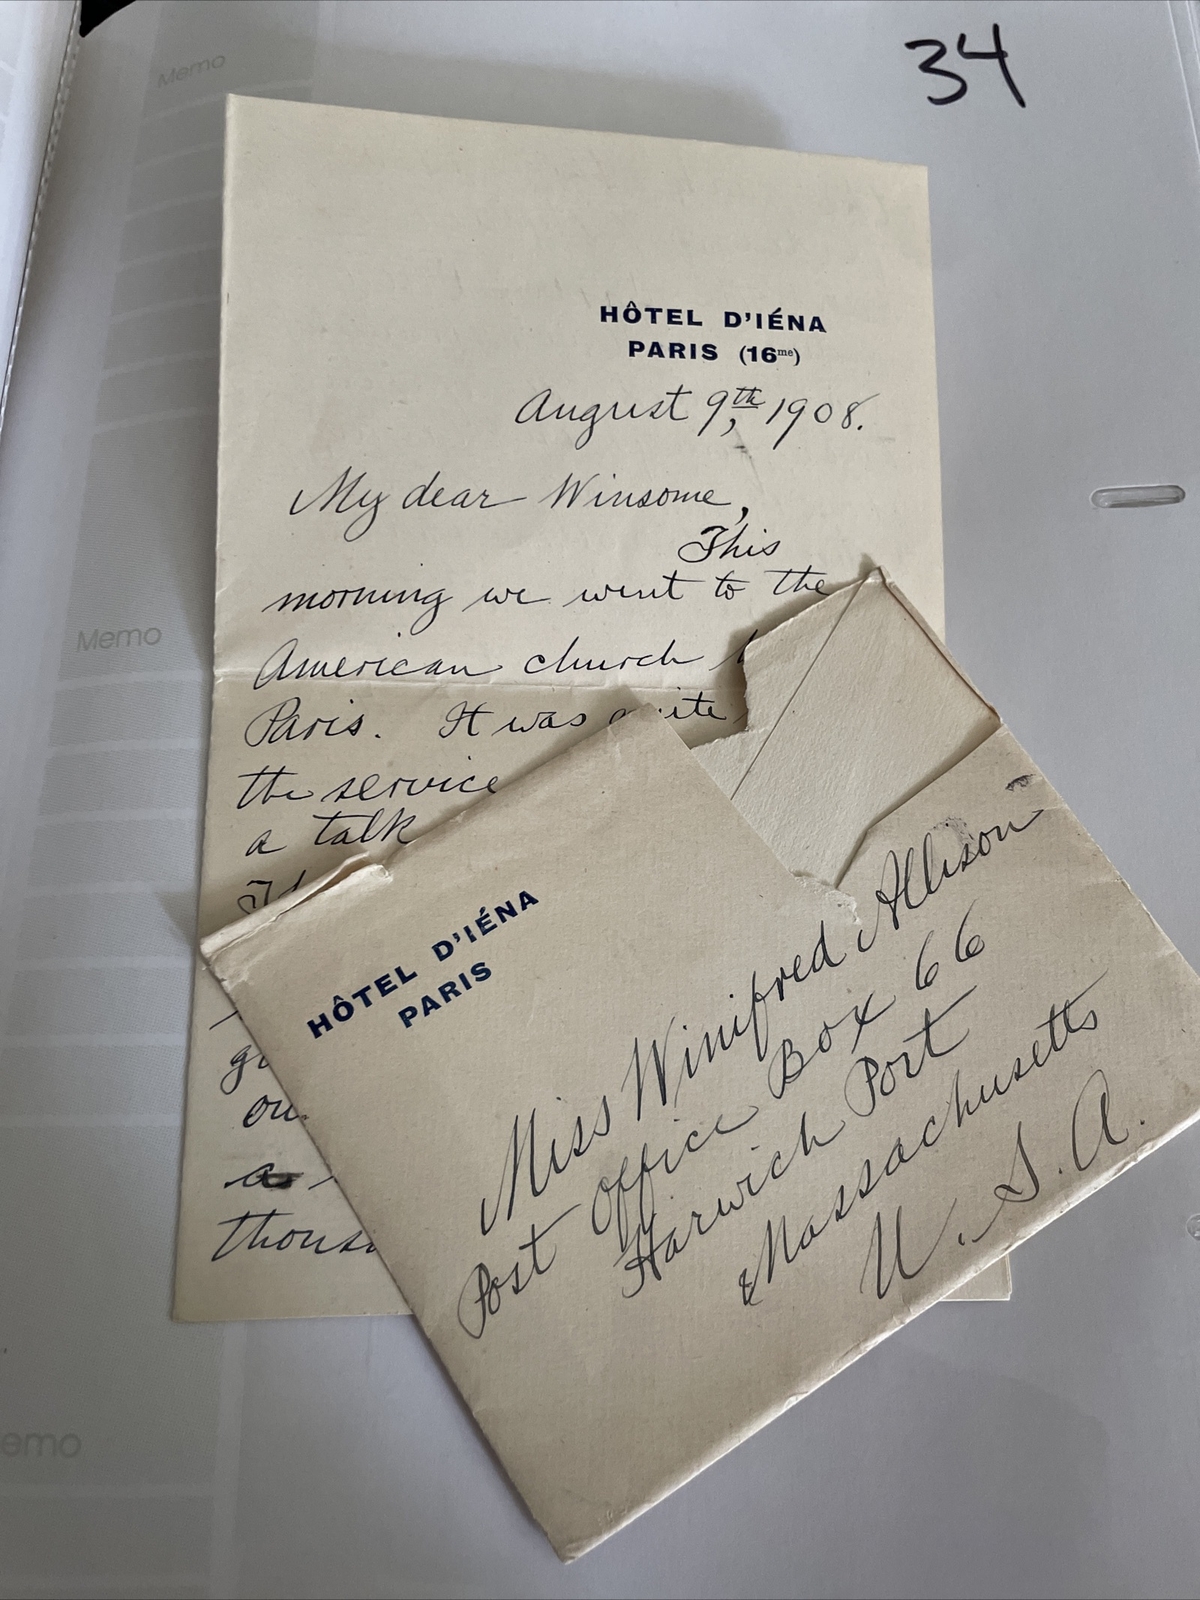 Memo
34
HÔTEL D'IÉNA
PARIS (16me)
August 9th, 1908.
My dear Winsome,
This
morning we went to the
American church
Paris. It was quite
the service
a talk
thous
Memo
emo
HÔTEL D'IÉNA
PARIS
Miss Winifred Allison
Post Office Box 66
Harwich Port
Massachusetts
U. S. A.